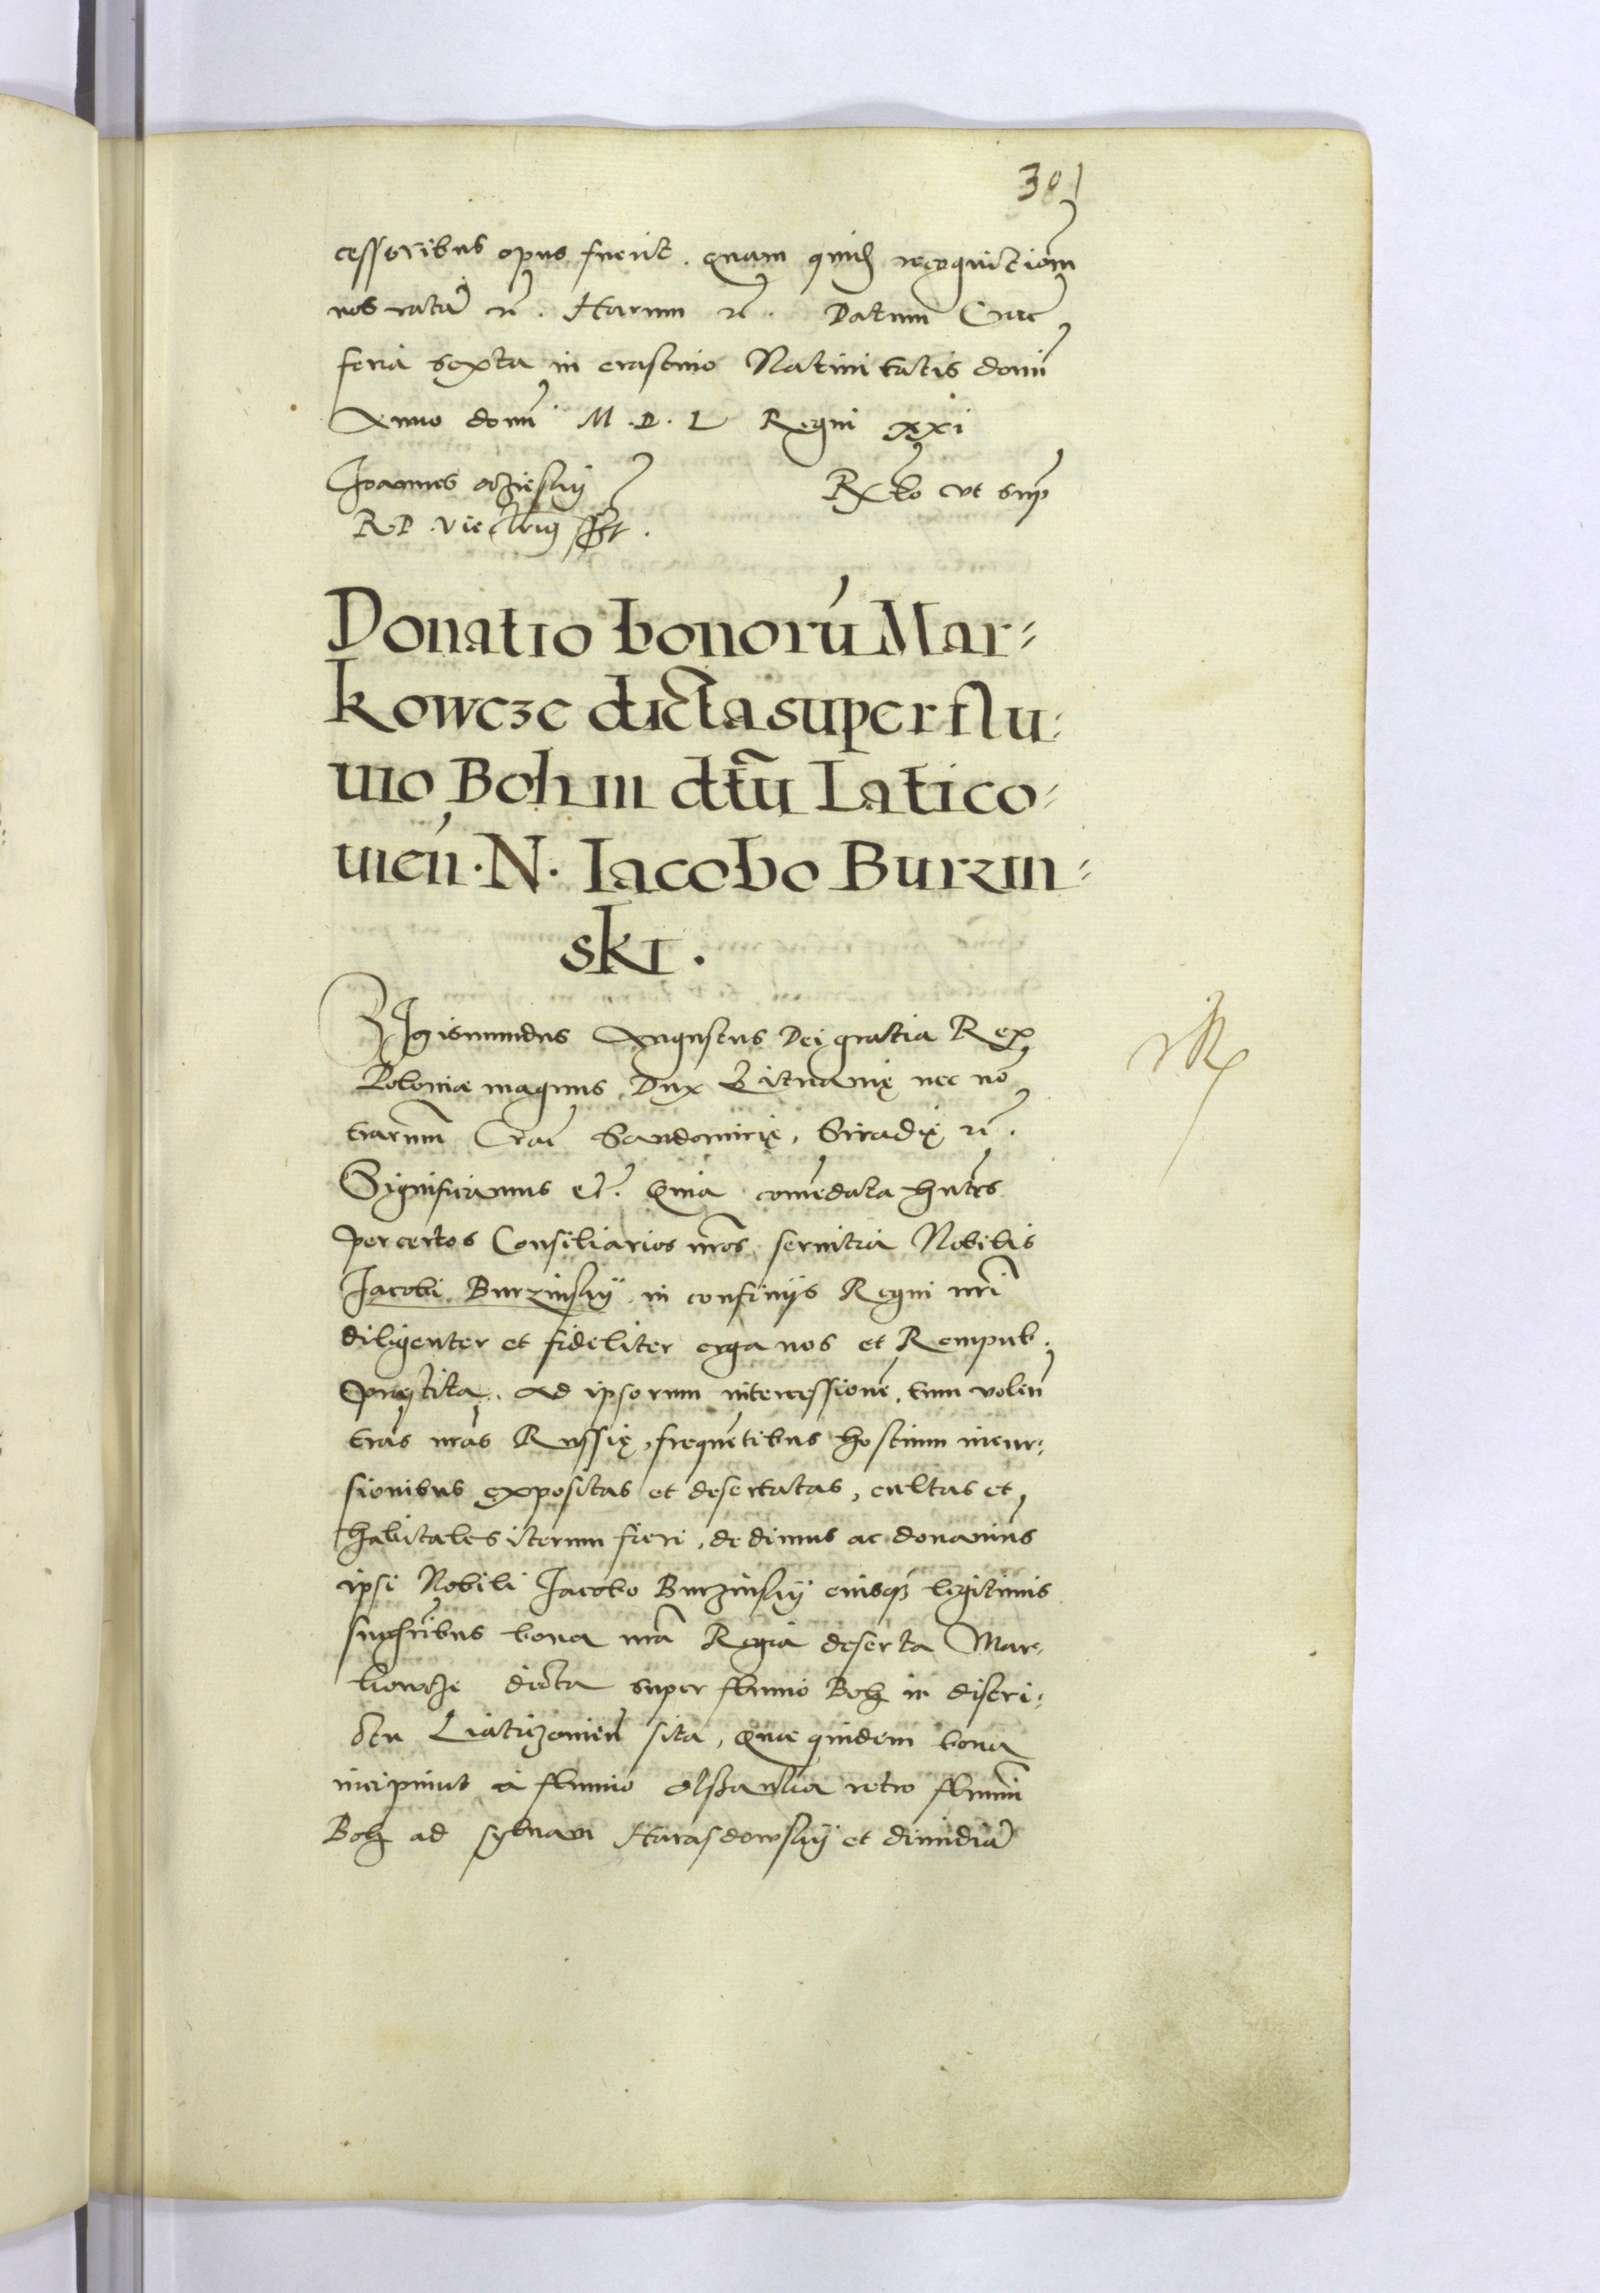 301
cessoribus opus fuerit. quam quid recognitiom
nos ratā rc. Harum rc. Datum Crac
feria sexta in crastino Natiui tatis domi
Anno domi M.D.L Regni xxi
Joannes Oczieskij Rẽlo vt sup
R.P. vie
Donatio bonorú Mar=
kowcze dicta super flu=
uio Boh in dtũ Latico=
uień. N. Iacobo Burzin=
ski.
Sigismundus Augustus Dei gratia Rex
Poloniæ magnus Dux Lituanię nec nō
trarum Crac̄ Sandomirię, Siradię rc.
Significamus etc̄. Quia com̄edata hn̄tes
per certos Consiliarios nr̄os seruitia Nobilis
Jacobi Burzinskij in confinijs Regni nr̄i
diligenter et fideliter erga nos et Rempub.
pręstita. Ad ipsorum intercessionē, tum volen̄
tr̄as nr̄as Russię, frequētibus hostium incur=
sionibus expositas et desertatas, cultas et
habitales iterum fieri, dedimus ac donauimus
ipsi Nobili Jacobo Burzinskij eiusqꝫ legitimis
succr̄ibus bona nr̄a Regia deserta Mar=
kowcze dicta super fluuio Boh in distri=
ctu Liatizouień sita, Quæ quidem bona
incipiunt a fluuio Olszanka retro fluuiū
Boh ad syluam Harasdowskij et dimidiā